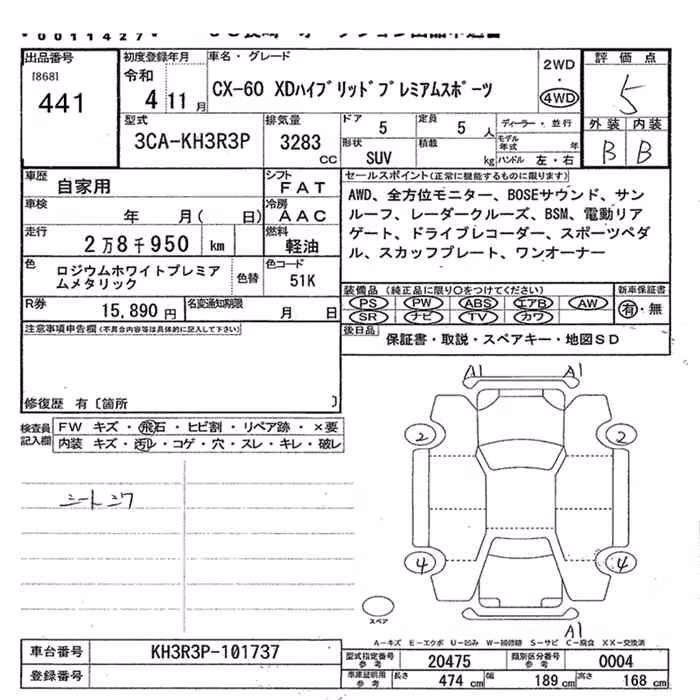 *0011427*
出品番号
[868]
441
初度登録年月
令和
4 11月
車名・グレード
CX-60 XDハイブリッドプレミアムスポーツ
2WD
・
4WD
評価点
5
外装 内装
B B
型式
3CA-KH3R3P
排気量
3283
CC
ドア
5
定員
5 人
ディーラー・並行
形状
SUV
積載
kg
モデル年式 年
ハンドル 左・右
車歴
自家用
シフト
FAT
車検
年 月( 日)
冷房
AAC
走行
2万8千950 km
燃料
軽油
色
ロジウムホワイトプレミアムメタリック
色替
色コード
51K
R券
15,890円
名変通知期限
月 日
セールスポイント(正常に機能するものに限ります)
AWD、全方位モニター、BOSEサウンド、サン
ルーフ、レーダークルーズ、BSM、電動リア
ゲート、ドライブレコーダー、スポーツペダ
ル、スカッフプレート、ワンオーナー
装備品(純正品に限り○をつけてください)
PS PW ABS エアB AW
SR ナビ TV カワ
新車保証書
有・無
後日品
保証書・取説・スペアキー・地図SD
注意事項申告欄(不具合内容等は具体的に記入して下さい)
修復歴 有〔箇所 〕
検査員
記入欄
FW キズ・飛石・ヒビ割・リペア跡・×要
内装 キズ・汚レ・コゲ・穴・スレ・キレ・破レ
シートシワ
A1 A1
2 2
4 4
A1
スペア
A-キズ E-エクボ U-凹み W-補修跡 S-サビ C-腐食 XX-交換済
車台番号
KH3R3P-101737
登録番号
型式指定番号
参考
20475
類別区分番号
参考
0004
車庫証明用
参考
長さ
474 cm
幅
189 cm
高さ
168 cm